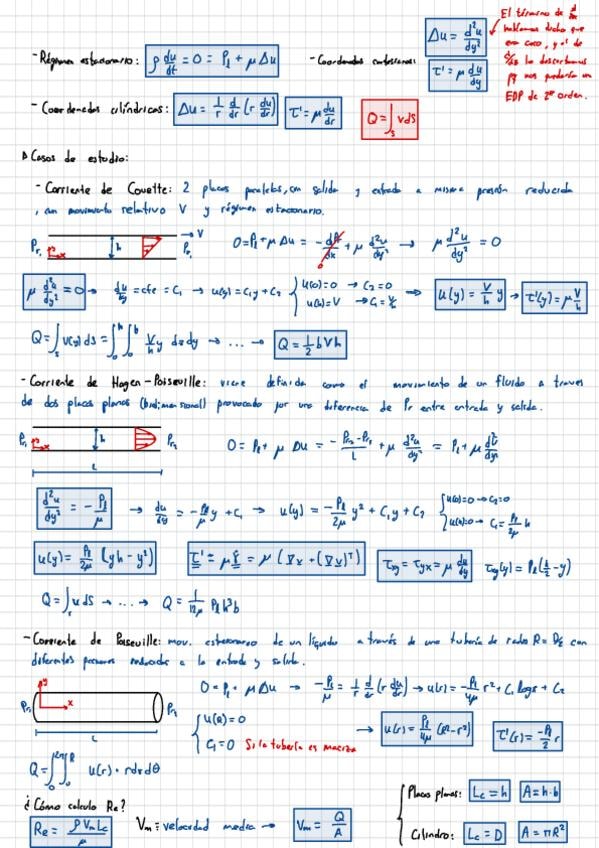 El término de d/dx
habíamos dicho que
era cero, y el de
d/dz lo descartamos
pq nos quedaría un
EDP de 2º orden.
- Régimen estacionario: ρ du/dt = 0 = Pl + μ Δu - Coordenadas cartesianas Δu = d²u/dy²
τ' = μ du/dy
- Coordenadas cilíndricas: Δu = 1/r d/dr (r du/dr) τ' = μ du/dr Q = ∫s v dS
Casos de estudio:
- Corriente de Couette: 2 placas paralelas, con salida y entrada a misma presión reducida
, con movimiento relativo V y régimen estacionario.
Pr1 y x h → V Pr2 0 = Pl + μ Δu = - dPr/dx + μ d²u/dy² → μ d²u/dy² = 0
μ d²u/dy² = 0 → du/dy = cte = C₁ → u(y) = C₁y + C₂ { u(0)=0 → C₂=0 u(h)=V → C₁=V/h → u(y) = V/h y → τ'(y) = μ V/h
Q = ∫s v(y) dS = ∫₀ʰ ∫₀ᵇ V/h y dz dy → ... → Q = 1/2 b V h
- Corriente de Hagen-Poiseville: viene definida como el movimiento de un fluido a traves
de dos placas planas (bidimensional) provocado por una diferencia de Pr entre entrada y salida.
Pr1 y x h Pr2 L 0 = Pl + μ Δu = - Pr2-Pr1/L + μ d²u/dy² = Pl + μ
d²u/dy² = - Pl/μ → du/dy = - Pl/μ y + C₁ → u(y) = - Pl/2μ y² + C₁y + C₂ { u(0)=0 → C₂=0 u(h)=0 → C₁ = Pl/2μ h
u(y) = Pl/2μ (yh - y²) τ' = μ = μ (∇v + (∇v)ᵀ) τxy = τyx = μ du/dy τxy(y) = Pl(h/2 - y)
Q = ∫s u dS → ... → Q = 1/12μ Pl h³ b
- Corriente de Poiseville: mov. estacionario de un líquido a través de una tubería de radio R = D/2 con
diferentes presiones reducidas a la entrada y salida.
Pr1 y x Pr2 L 0 = Pl + μ Δu → - Pl/μ = 1/r d/dr (r du/dr) → u(r) = - Pl/4μ r² + C₁ log r + C₂
{ u(R) = 0 C₁ = 0 Si la tubería es maciza → u(r) = Pl/4μ (R² - r²) τ'(r) = -Pl/2 r
Q = ∫₀²π ∫₀ᴿ u(r) · r dr dθ
¿Cómo calculo Re?
Re = ρ Vm Lc/μ Vm ≡ velocidad media → Vm = Q/A
{ Placas planas: Lc = h A = h·b
Cilindro: Lc = D A = πR²